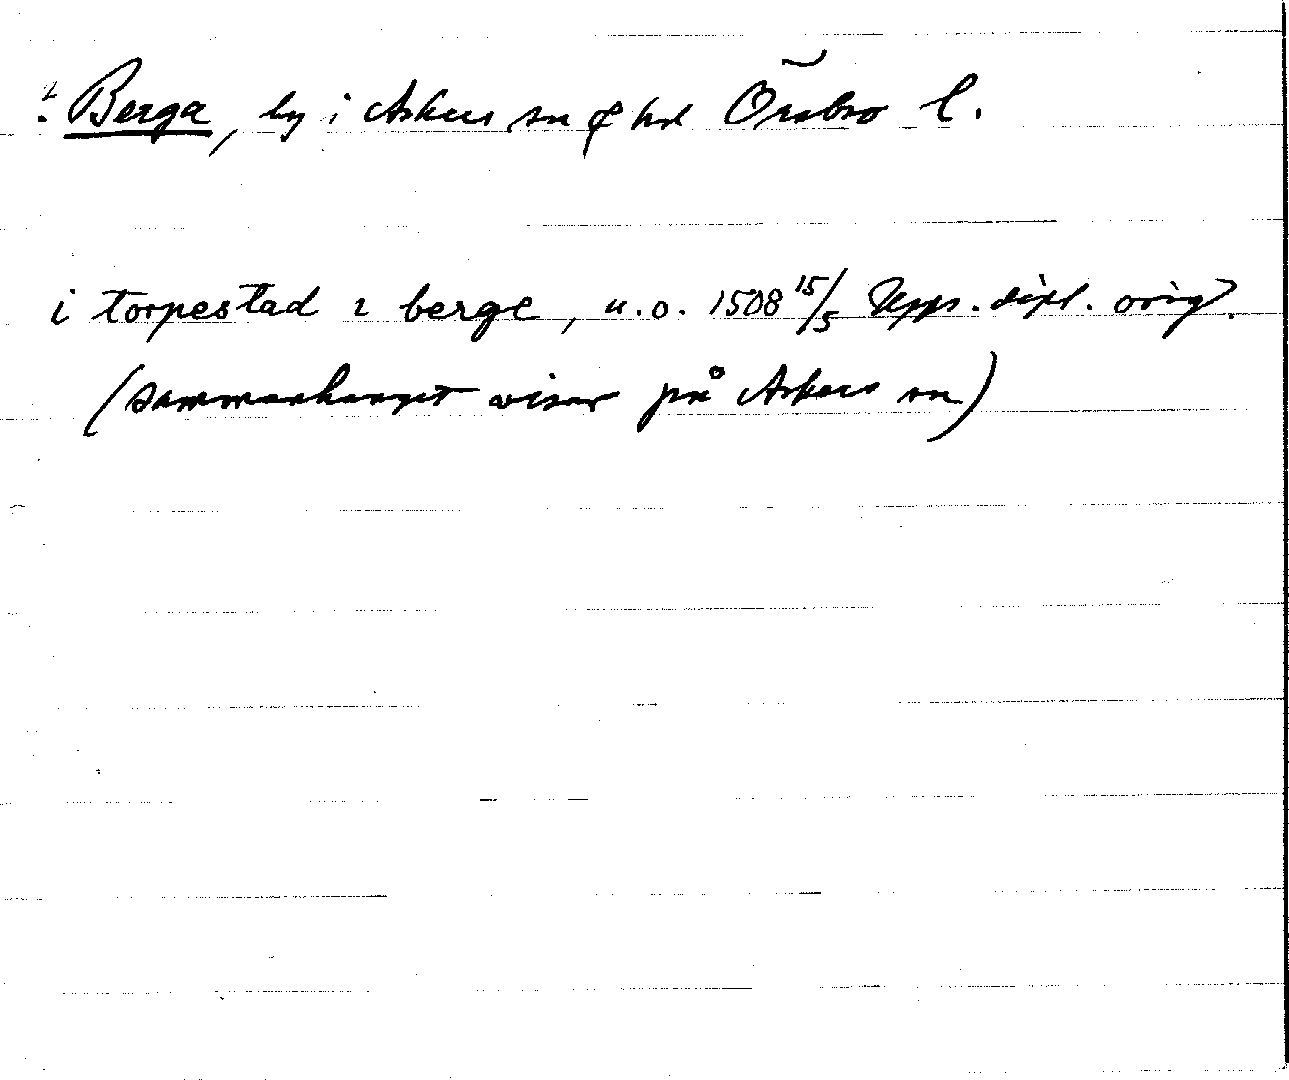 ? Berga, by i Askers sn o hd Örebro l.
i torpestad ⁊ berge, u.o. 1508 15/5 Upps. dipl. orig.
(sammanhanget visar på Askers sn)